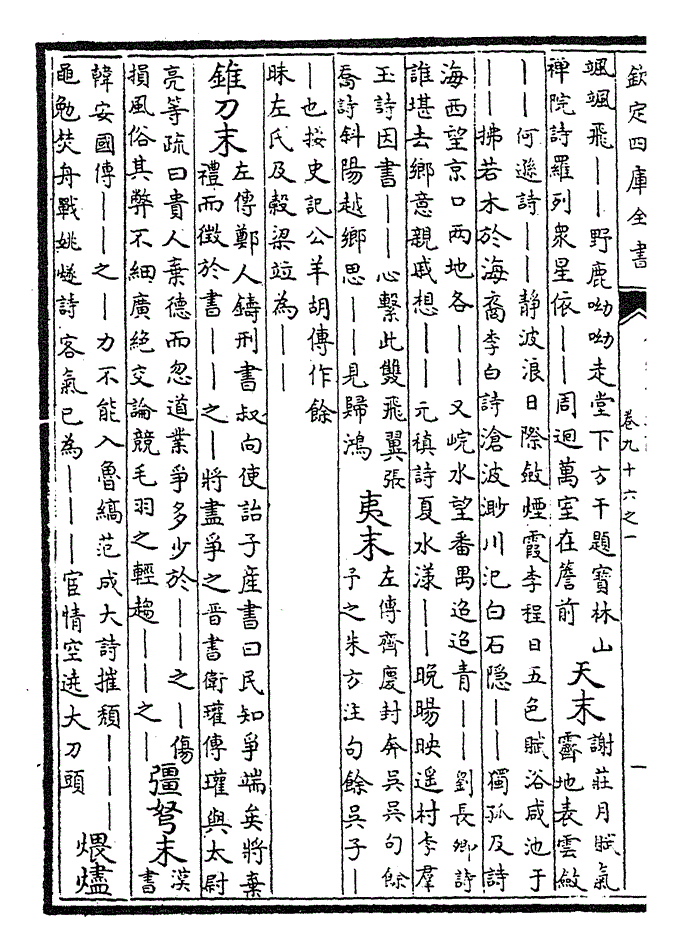 欽定四庫全書
卷九十六之一
一
颯颯飛——野鹿呦呦走堂下方干題寶林山
禪院詩羅列衆星依——周迴萬室在簷前
天末
謝莊月賦氣
霽地表雲斂
——何遜詩——静波浪日際斂煙霞李程日五色賦浴咸池于
——拂若木於海裔李白詩滄波渺川汜白石隐——獨孤及詩
海西望京口兩地各——又峴水望番禺迢迢青——劉長卿詩
誰堪去鄉意親戚想——元稹詩夏水漾——晚暘映遥村李羣
玉詩因書——心繫此雙飛翼張
喬詩斜陽越鄉思——見歸鴻
夷末
左傳齊慶封奔吴吴句餘
予之朱方注句餘吴子—
—也按史記公羊胡傳作餘
昧左氏及穀梁竝為——
錐刀末
左傳鄭人鑄刑書叔向使詒子産書曰民知爭端矣將棄
禮而徵於書——之—將盡爭之晋書衛瓘傳瓘與太尉
亮等疏曰貴人棄德而忽道業爭多少於——之—傷
損風俗其弊不細廣絶交論競毛羽之輕趨——之—
彊弩末
漢
書
韓安國傳——之—力不能入魯縞范成大詩摧頽———
黽勉焚舟戰姚燧詩客氣已為———宦情空遶大刀頭
煨燼